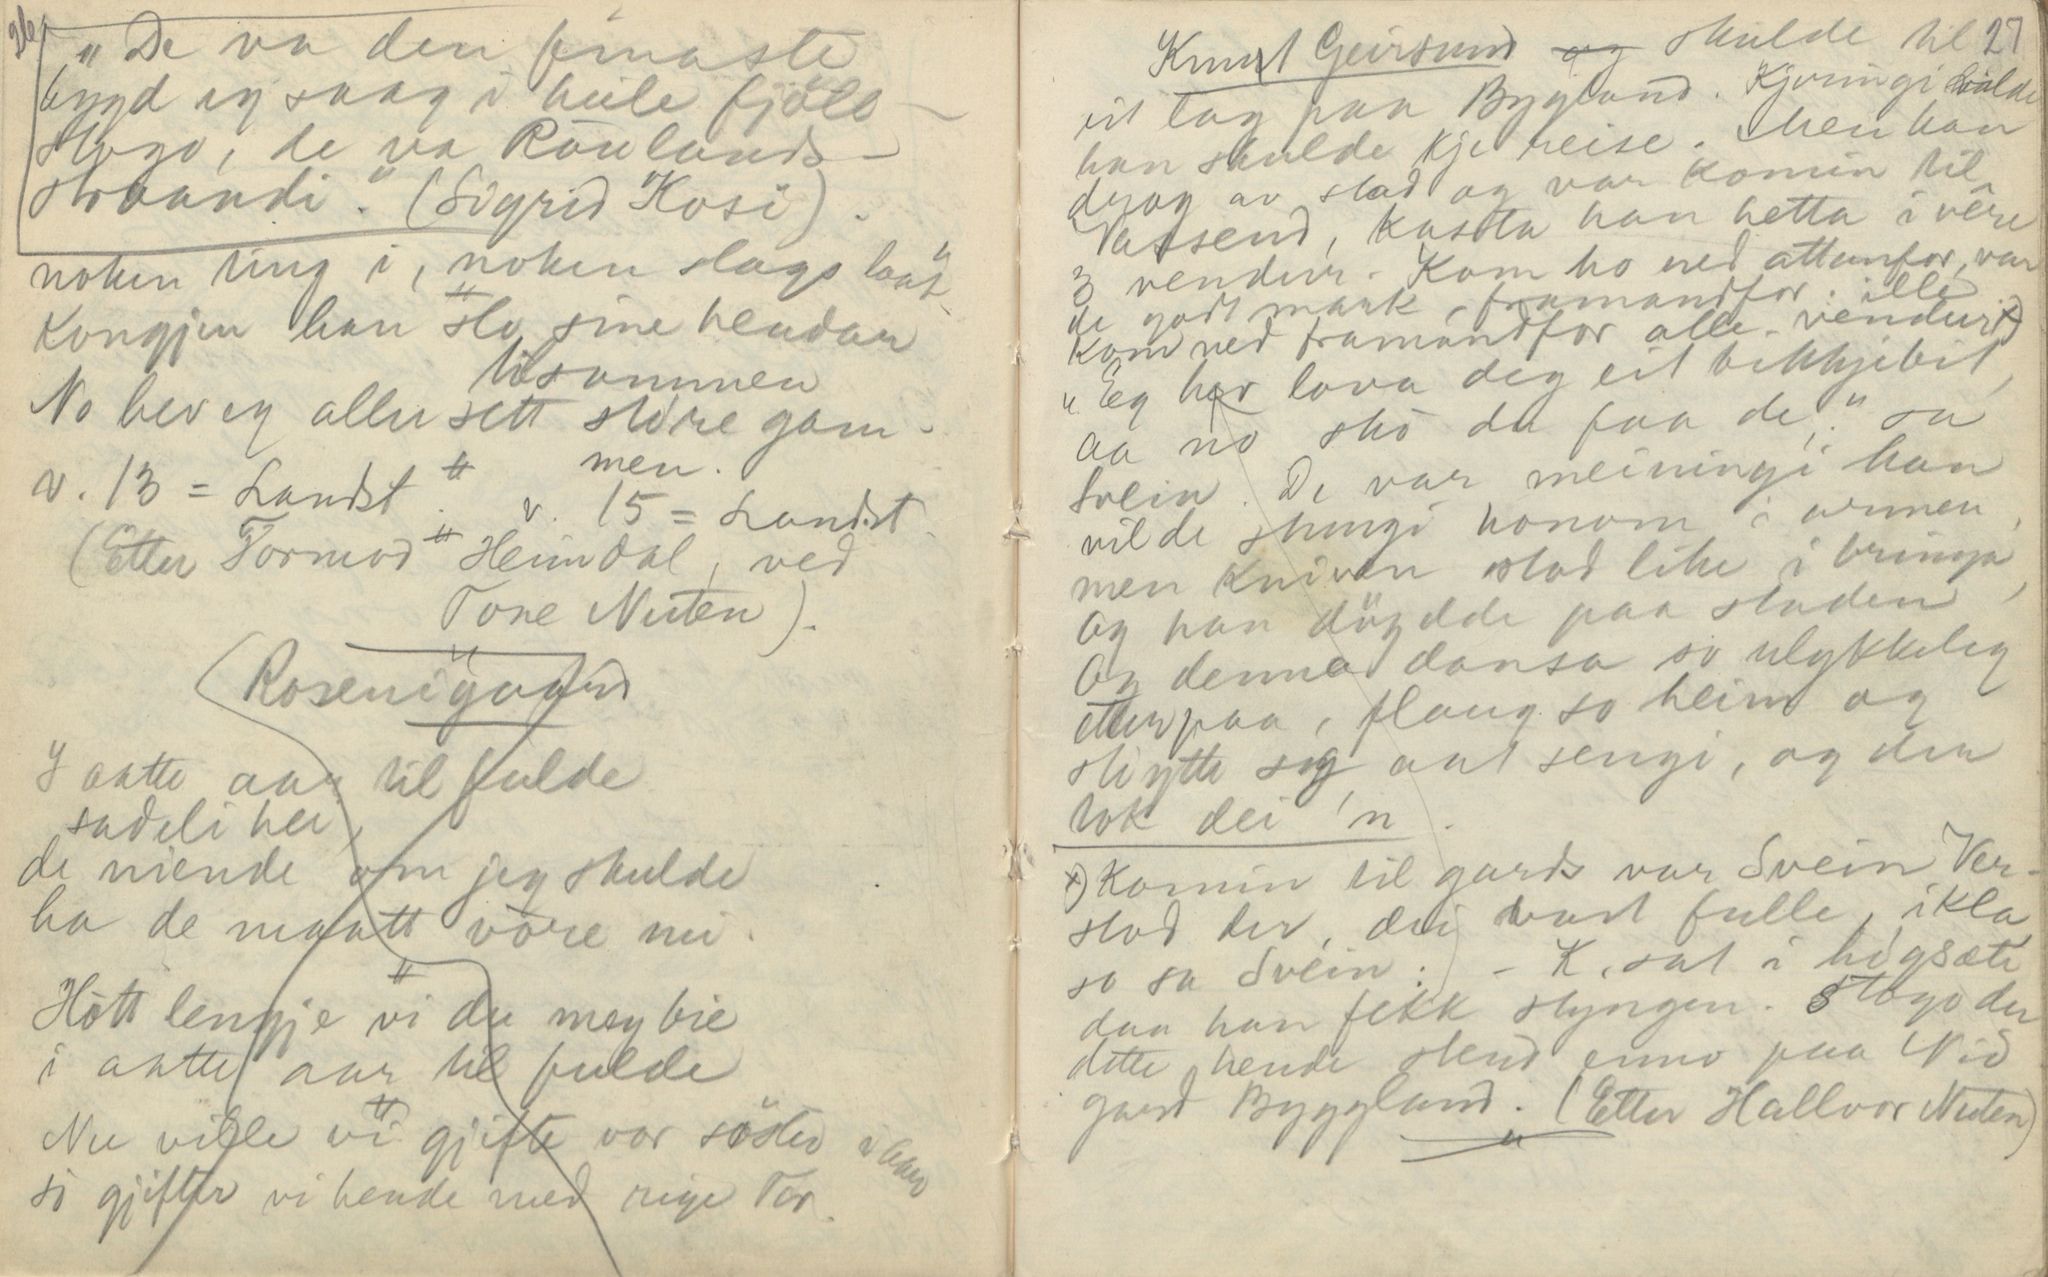 26
"De va den finaste
bygd eg saag i heile fjöll-
skogo, de va Raulands-
strandi." (Sigrid Kosi).
noken ting i, noken slags laat
Kongjen han slo sine hendar
tilsammen
No hev eg aller sett större gam-
men.
v. 13 = Landst. v. 15 = Landst.
(Etter Tormod Heimdal, ved
Tone Nuten).
Rosenigaard
I aatte aar til fulde
sadeli her,
de niende om jeg skulde
ha de maatt vöre nu.
Hött lengje vi du meg bie
i aatte aar til fulde
Nu ville vi gjifte vor söster
so gjifter vi hende med rige Tor.
27
Knut Geirsund og skulde til
eit lag paa Bygland. Kjeringi vilde
han skulde kje reise. Men han
drog av stad og var komin til
Vassend, kasta han hetta i være
3 vendur. Kom ho ned attanfor, var
de godt mark, framandfor: ille.
Kom ned framandfor alle vendur x)
"Eg her lova deg eit bikkjebit,
aa no sko du faa de," sa
Svein. De var meiningi han
vilde stungi honom i armen,
men kniven stod like i bringa,
og han döydde paa staden,
Og denna dansa so ulykkeleg
etterpaa, flaug so heim og
støytte seg aat sengi, og der
tok dei 'n.
x) Komin til gards var Svein Ver-
stad der, dei vart fulle, i kla,
so sa Svein: - K. sat i högsæte
daa han fekk styngen. Stogo der
dette hende stend enno paa Nid
gard Byggland. (Etter Hallvor Nuten)